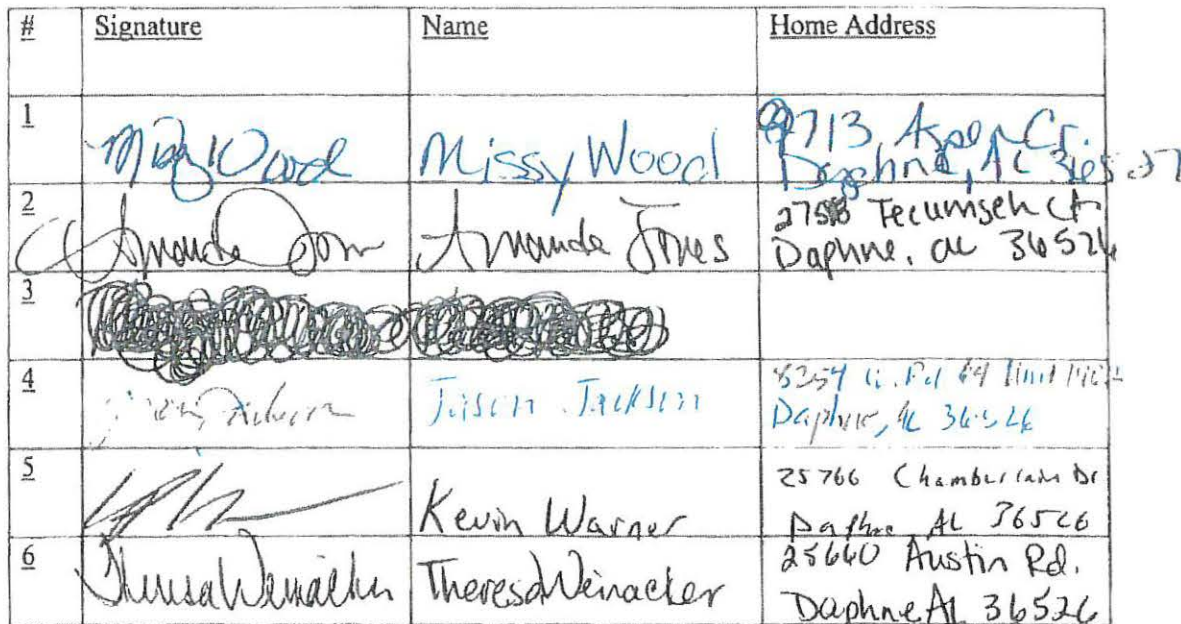 # Signature Name Home Address
1 Missy Wood Missy Wood 9713 Aspen Cr.
Daphne, AL 36527
2 Amanda Jones Amanda Jones Tecumseh Ct
Daphne, al 36526
3
4 Jason Jackson 8354 Rd 64
Daphne, AL 36526
5 Kevin Warner 25766 Chamberlain Dr
Daphne AL 36526
6 Theresa Weinacker Theresa Weinacker 25660 Austin Rd.
Daphne AL 36526